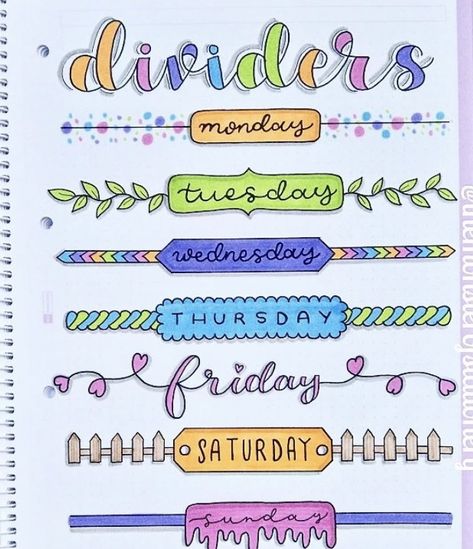 dividers
monday
tuesday
wednesday
THURSDAY
friday
SATURDAY
sunday